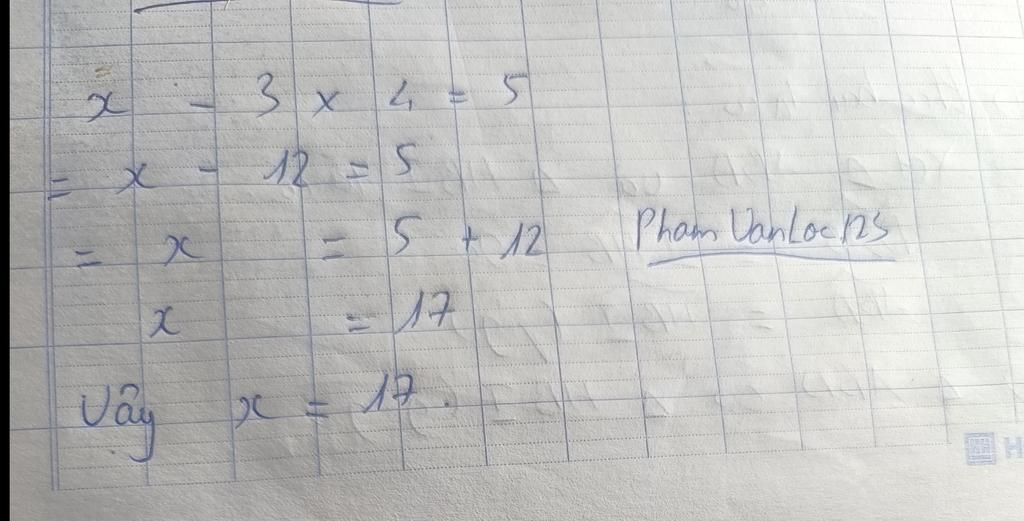 x - 3 x 4 = 5
= x - 12 = 5
= x = 5 + 12
Pham Van Loc 12S
x = 17
Vây x = 17.
H